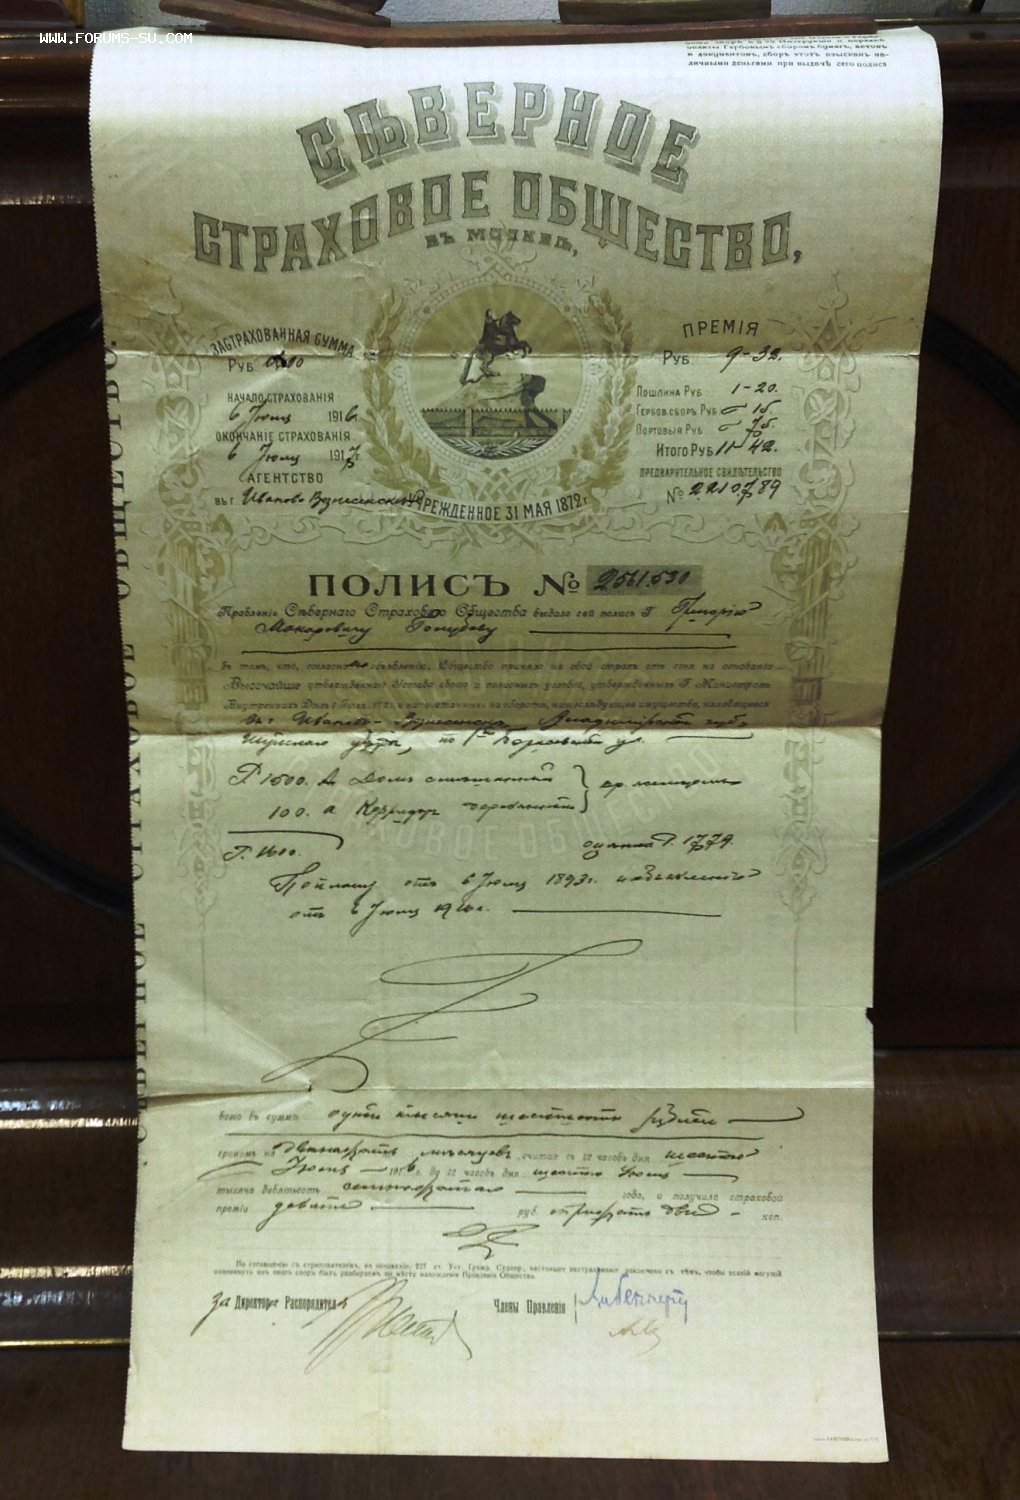 WWW.FORUMS-SU.COM
оплаты Гербовымъ сборомъ бумагъ, актовъ
и документовъ, сборъ этотъ взысканъ на-
личными деньгами при выдачѣ сего полиса
СѢВЕРНОЕ
СТРАХОВОЕ ОБЩЕСТВО,
ВЪ МОСКВѢ,
ЗАСТРАХОВАННАЯ СУММА
Руб
НАЧАЛО СТРАХОВАНІЯ
6 Іюня 1916
ОКОНЧАНІЕ СТРАХОВАНІЯ
6 Іюня 1917 г.
АГЕНТСТВО
въ г. Иваново Вознесенскъ
ПРЕМІЯ
Руб 9-32.
Пошлина Руб 1-20.
Гербов. сборъ Руб 15.
Портовыя Руб 75.
Итого Руб 11-42.
ПРЕДВАРИТЕЛЬНОЕ СВИДѢТЕЛЬСТВО
№ 2210789
УЧРЕЖДЕННОЕ 31 МАЯ 1872 г.
ПОЛИСЪ № 2561.530
Правленіе Сѣвернаго Страхового Общества выдало сей полисъ Г.
Макаровичу Голубеву
въ томъ, что, согласно объявленію, Общество приняло на свой страхъ отъ огня на основаніи
Высочайше утвержденнаго Устава своего и полисныхъ условій, утвержденныхъ Г. Министромъ
Внутреннихъ Дѣлъ и напечатанныхъ на оборотѣ, нижеслѣдующее имущество, находящееся
въ г. Иваново-Вознесенскъ, Владимірской губ.
Шуйскаго уѣзда, по
Р. 1500. А Домъ смѣшанный
100. а Корридоръ деревянный
Р. 1600. оцѣнка Р. 1779.
По плану отъ 6 Іюня 1893 г.
отъ 6 Іюня 1916 г.
всего въ суммѣ одной тысячи шестьсотъ рублей
срокомъ на двѣнадцать мѣсяцевъ, считая съ 12 часовъ дня шестого
Іюня 1916 г. до 12 часовъ дня шестого Іюня
тысяча девятьсотъ семнадцатаго года, и получило страховой
преміи девять руб. тридцать двѣ коп.
По соглашенію съ страхователемъ, на основаніи 227 ст. Уст. Гражд. Судопр., настоящее застрахованіе заключено съ тѣмъ, чтобы всякій могущій
возникнуть изъ него споръ былъ разбираемъ по мѣсту нахожденія Правленія Общества.
За Директоръ Распорядитель
Члены Правленія
СѢВЕРНОЕ СТРАХОВОЕ ОБЩЕСТВО.